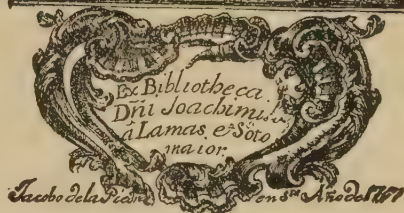 Ex Bibliotheca
Dñi Joachimi
â Lamas, et Soto
maior.
Jacobo de la Piedra en Sn. Año de 1767